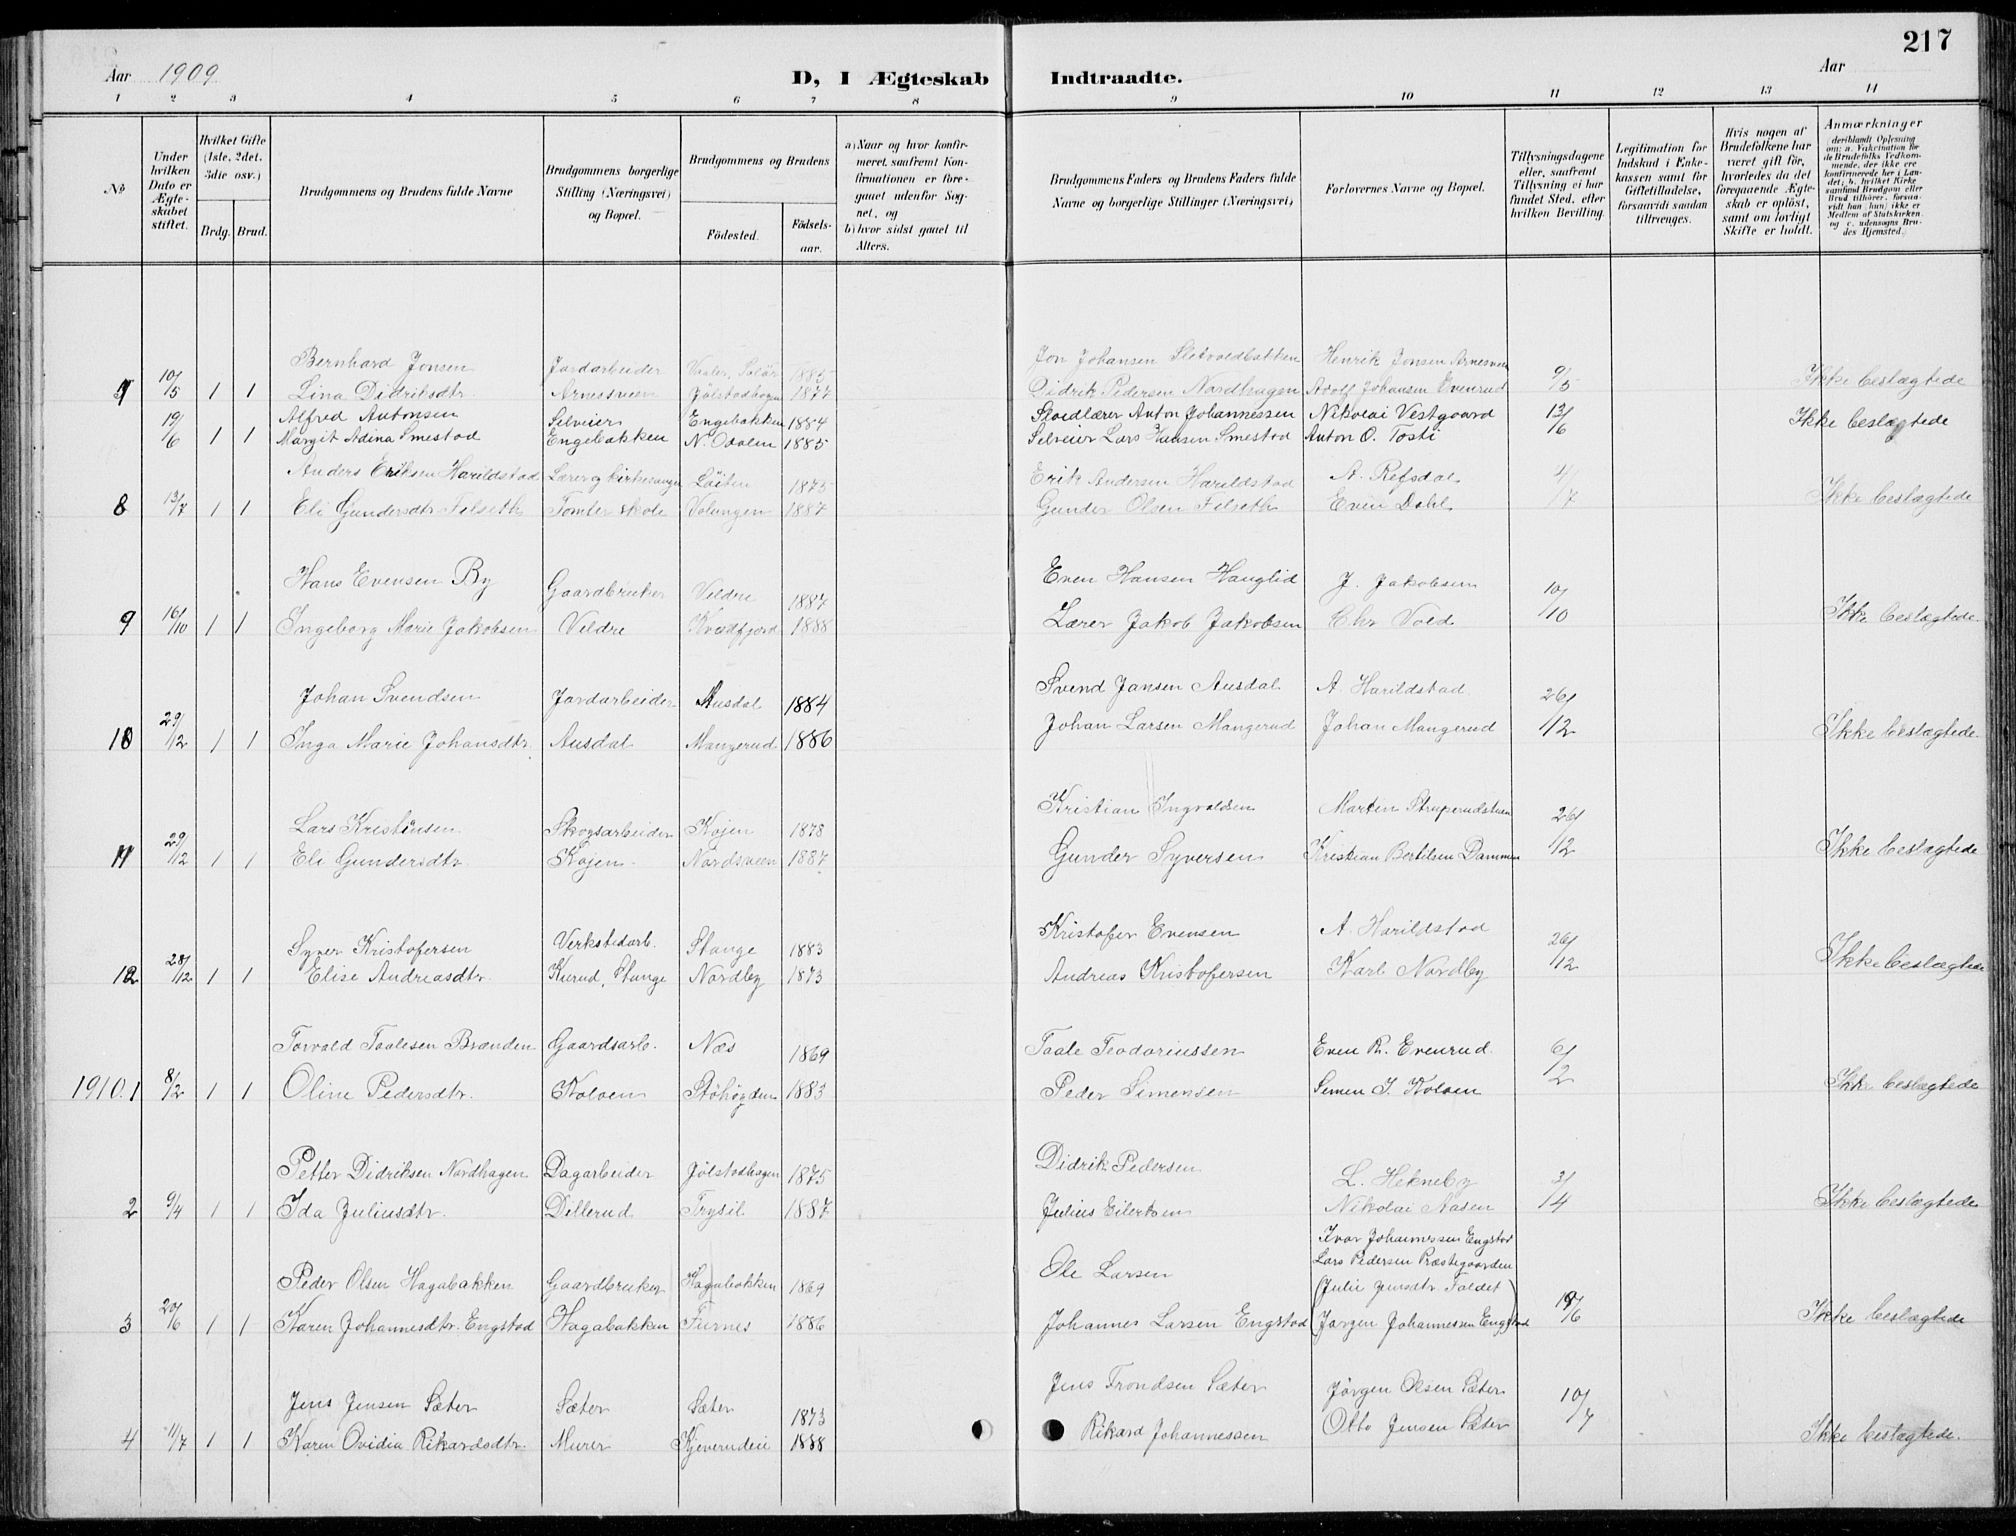 217
Aar 1909
D, I Ægteskab Indtraadte.
Aar
1 2 3 4 5 6 7 8 9 10 11 12 13 14
No
Under hvilken Dato er Ægteskabet stiftet.
Hvilket Gifte (1ste, 2det, 3die osv.)
Brdg. Brud.
Brudgommens og Brudens fulde Navne
Brudgommens borgerlige Stilling (Næringsvei) og Bopæl.
Brudgommens og Brudens
Födested. Födsels-aar.
a) Naar og hvor konfirmeret, saafremt Konfirmationen er foregaaet udenfor Sognet, og
b) hvor sidst gaaet til Alters.
Brudgommens Faders og Brudens Faders fulde Navne og borgerlige Stillinger (Næringsvei)
Forlovernes Navne og Bopæl.
Tillysningsdagene eller, saafremt Tillysning ei har fundet Sted, efter hvilken Bevilling.
Legitimation for Indskud i Enkekassen samt for Giftetilladelse, forsaavidt saadan tiltrænges.
Hvis nogen af Brudefolkene har været gift för, hvorledes da det foregaaende Ægteskab er oplöst, samt om lovligt Skifte er holdt.
Anmærkninger
(deriblandt Oplysning om: a. Vakcination for de Brudefolks Vedkommende, der ikke ere konfirmerede her i Landet; b. hvilket Kirkesamfund Brudgom eller Brud tilhører, forsaavidt han (hun) ikke er Medlem af Statskirken. og c. udensogns Brudes Hjemsted.)
Bernhard Jonsen Jordarbeider Vaaler, Solör 1885 Jon Johansen Sletvoldbakken Henrik Jonsen Arnesveen
7 10/5 1 1 Lina Didriksdtr. Arnesveen Jølstadhagen 1877 Didrik Pedersen Nordhagen Adolf Johansen Evenrud 9/5 Ikke beslægtede
Alfred Antonsen Selveier Engebakken 1884 Sloidlærer Anton Johannessen Nikolai Vestgaard 13/6 Ikke beslægtede
19/6 1 1 Margit Adina Smestad Engebakken N. Odalen 1885 Selveier Lars Hansen Smestad Anton O. Tosti
Anders Eriksen Harildstad Lærer og kirkesanger Löiten 1875 Erik Andersen Harildstad A. Refsdal 4/7
8 13/7 1 1 Eli Gundersdtr Felseth Tomter skole Volungen 1887 Gunder Olsen Felseth Even Dahl Ikke beslægtede
Hans Evensen By Gaardbruker Veldre 1887 Even Hansen Hauglid J. Jakobsen 10/10
9 16/10 1 1 Ingeborg Marie Jakobsen Veldre Kvædfjord 1888 Lærer Jakob Jakobsen Chr Vold Ikke beslægtede.
Johan Svendsen Jordarbeider Ausdal 1884 Svend Jansen Ausdal A. Harildstad 26/12
10 29/12 1 1 Inga Marie Johansdtr. Ausdal Mangerud 1886 Johan Larsen Mangerud Johan Mangerud Ikke beslægtede.
Lars Kristiansen Skogsarbeider Kojen 1878 Kristian Ingvaldsen Martin Struperudstuen 26/12
11 29/12 1 1 Eli Gundersdtr Kojen Nordsveen 1887 Gunder Syversen Kristian Bertilsen Dammen Ikke beslægtede
Syver Kristofersen Verkstedarb. Stange 1883 Kristofer Evensen A. Harildstad 26/12
12 28/12 1 1 Elise Andreasdtr. Kurud, Stange Nordby 1873 Andreas Kristofersen Karl Nordby Ikke beslægtede
Torvald Taalesen Brænden Gaardsarb. Næs 1869 Taale Teodoriussen Even R. Evenrud. 6/2
1910. 1 8/2 1 1 Oline Pedersdtr. Koloen Stöhögden 1883 Peder Simensen Simen J. Koloen Ikke beslægtede
Petter Didriksen Nordhagen Dagarbeider Jølstadhagen 1875 Didrik Pedersen L. Hekneby 3/4
2 9/4 1 1 Ida Juliusdtr. Dillerud Trysil 1887 Julius Eilertsen Nikolai Aasen Ikke beslægtede
Ivar Johannessen Engstad
Peder Olsen Hagabakken Gaardbruker Hagabakken 1869 Ole Larsen Lars Pedersen Præstegaarden
(Julie Jensdtr Faldet)
3 20/6 1 1 Karen Johannesdtr. Engstad Hagabakken Furnes 1886 Johannes Larsen Engstad (Jørgen Johannessen Engstad 19/6 Ikke beslægtede
Jens Jensen Sæter Sæter Sæter 1873 Jens Trondsen Sæter Jörgen Olsen Sæter 10/7
4 11/7 1 1 Karen Ovidia Rikardsdtr. Murer Kjeverudeie 1888 Rikard Johannessen Otto Jensen Sæter Ikke beslægtede.